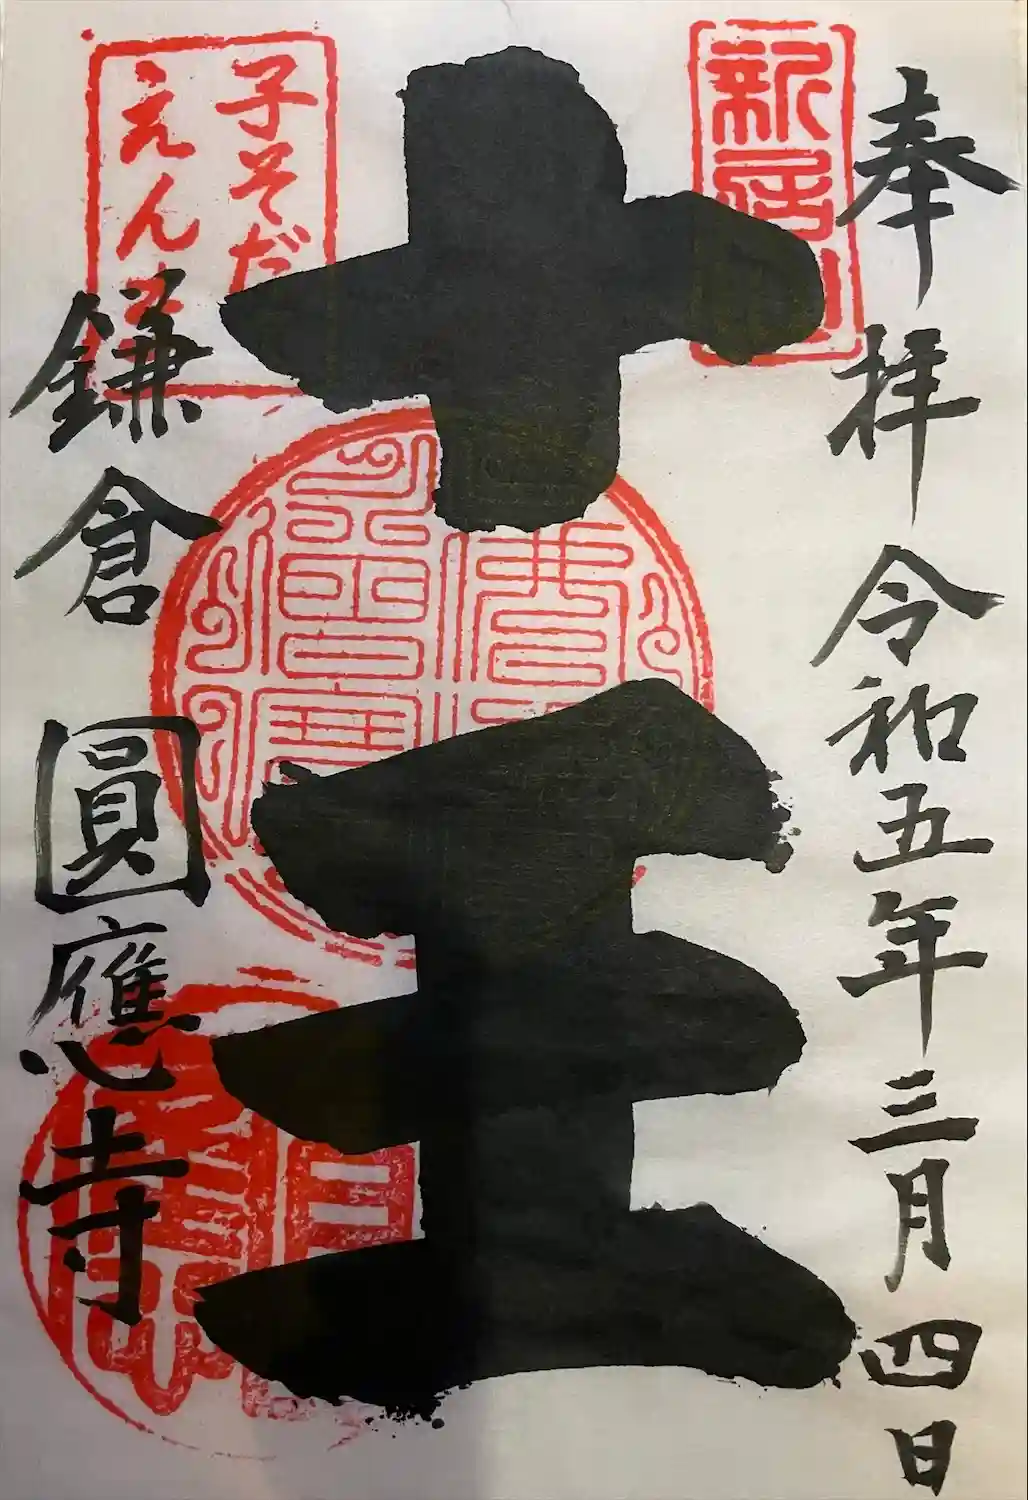 奉拝 令和五年三月四日
新居山
十王
子そだ
えん
鎌倉 圓應寺